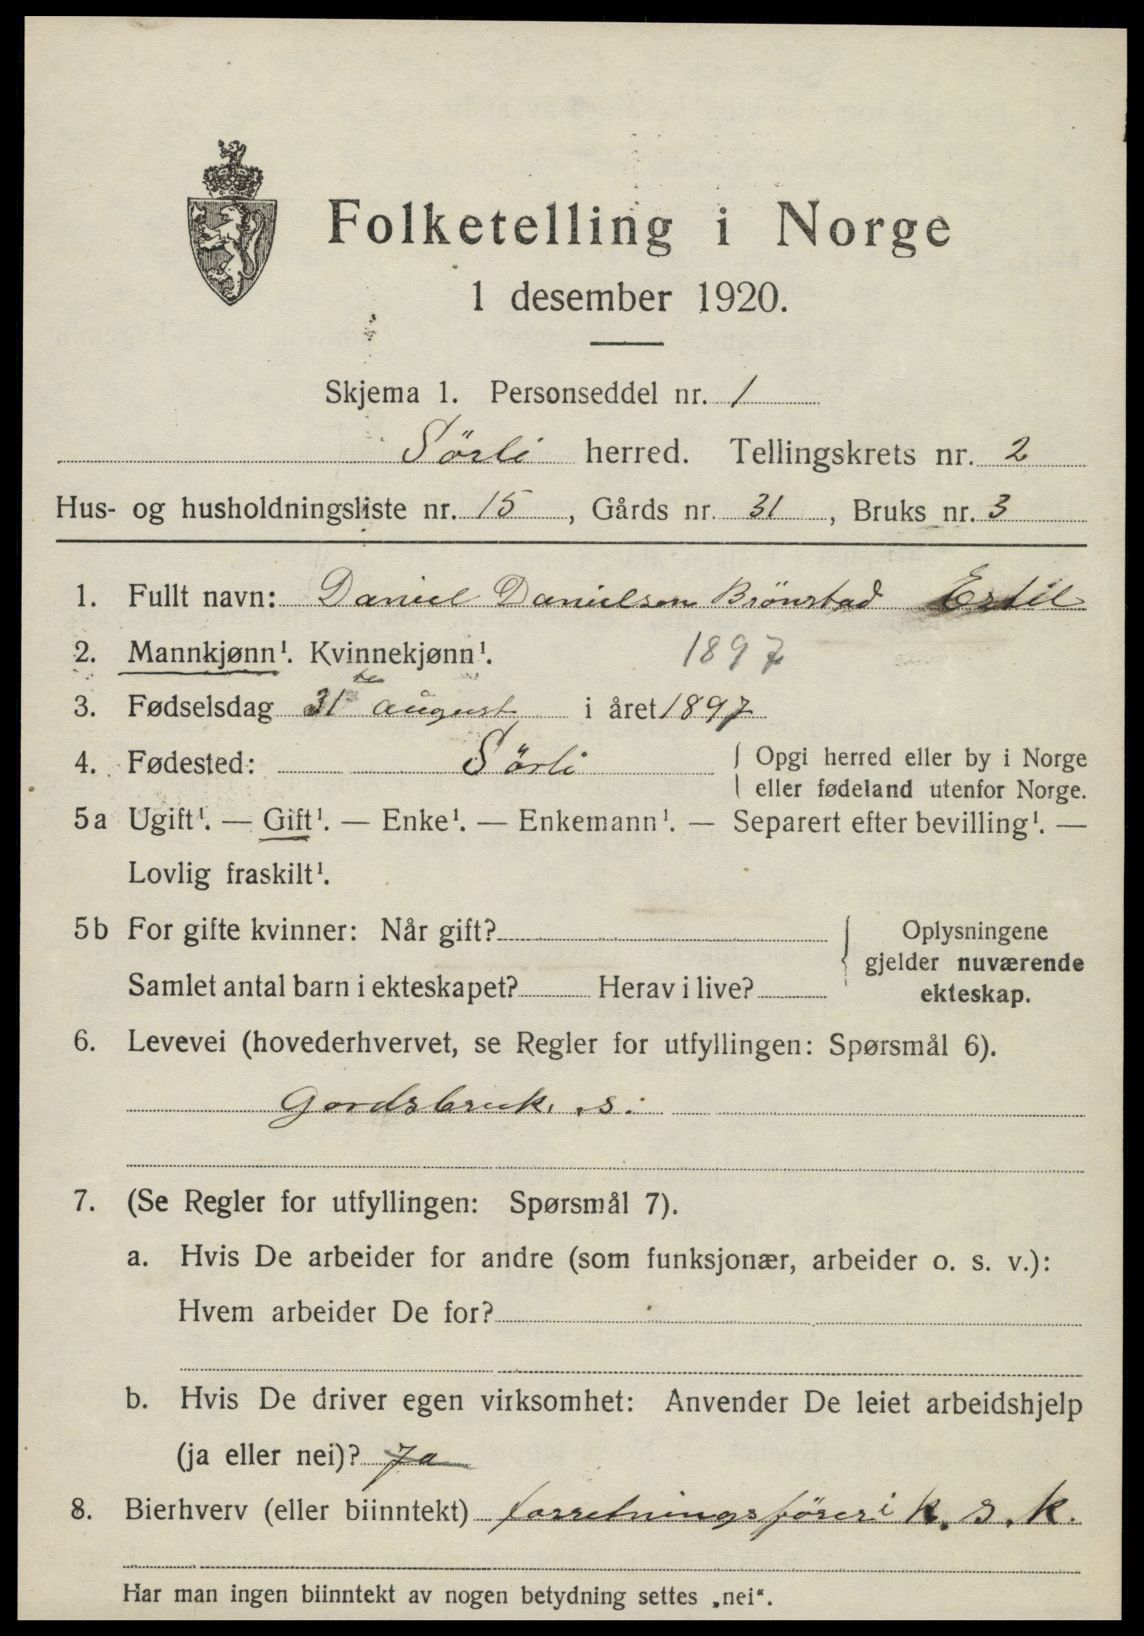 Folketelling i Norge
1 desember 1920.
Skjema 1. Personseddel nr. 1
Sörli herred. Tellingskrets nr. 2
Hus- og husholdningsliste nr. 15, Gårds nr. 31, Bruks nr. 3
1. Fullt navn: Daniel Danielsen Brönstad Estil
2. Mannkjønn¹. Kvinnekjønn¹. 1897
3. Fødselsdag 31te august i året 1897
4. Fødested: Sörli { Opgi herred eller by i Norge
eller fødeland utenfor Norge.
5a Ugift¹. — Gift¹. — Enke¹. — Enkemann¹. — Separert efter bevilling¹. —
Lovlig fraskilt¹.
5b For gifte kvinner: Når gift? { Oplysningene
gjelder nuværende
Samlet antal barn i ekteskapet? Herav i live? ekteskap.
6. Levevei (hovederhvervet, se Regler for utfyllingen: Spørsmål 6).
Gordsbruk. s.
7. (Se Regler for utfyllingen: Spørsmål 7).
a. Hvis De arbeider for andre (som funksjonær, arbeider o. s. v.):
Hvem arbeider De for?
b. Hvis De driver egen virksomhet: Anvender De leiet arbeidshjelp
(ja eller nei)? Ja
8. Bierhverv (eller biinntekt) forretningsförer i k. s. k.
Har man ingen biinntekt av nogen betydning settes „nei“.